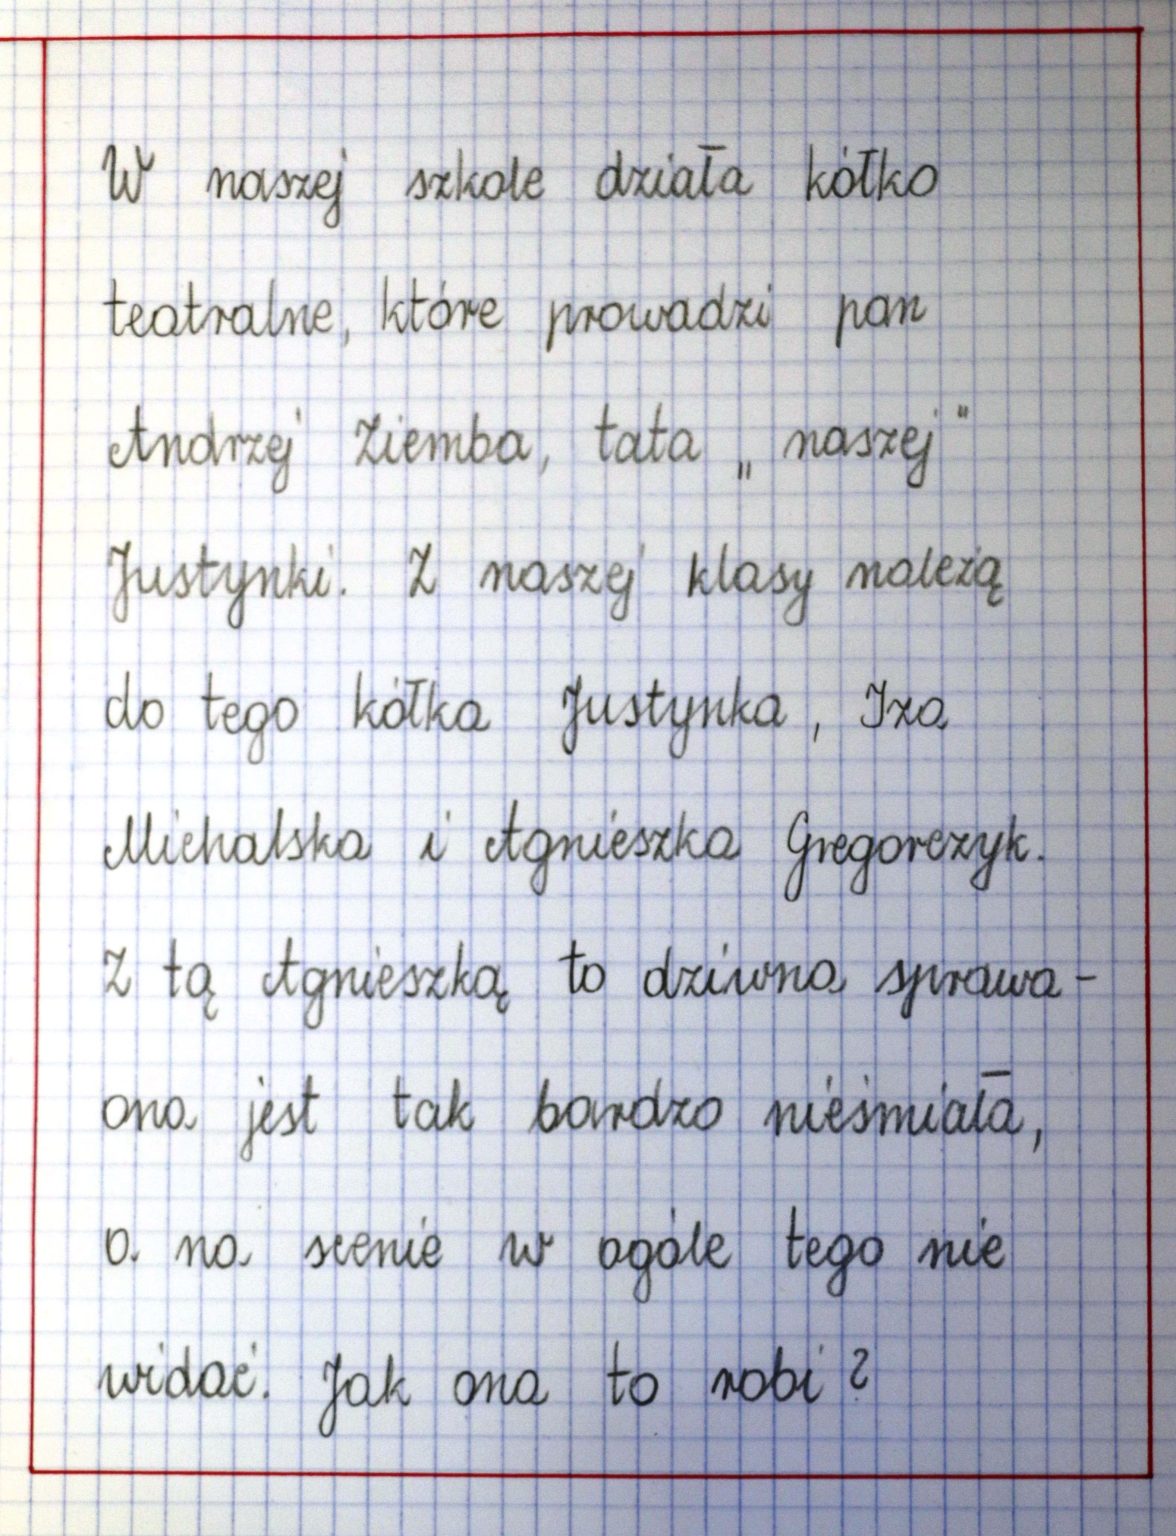 W naszej szkole działa kółko
teatralne, które prowadzi pan
Andrzej Ziemba, tata „naszej"
Justynki. Z naszej klasy należą
do tego kółka Justynka, Iza
Michalska i Agnieszka Gregorczyk.
Z tą Agnieszką to dziwna sprawa -
ona jest tak bardzo nieśmiała,
a na scenie w ogóle tego nie
widać. Jak ona to robi?